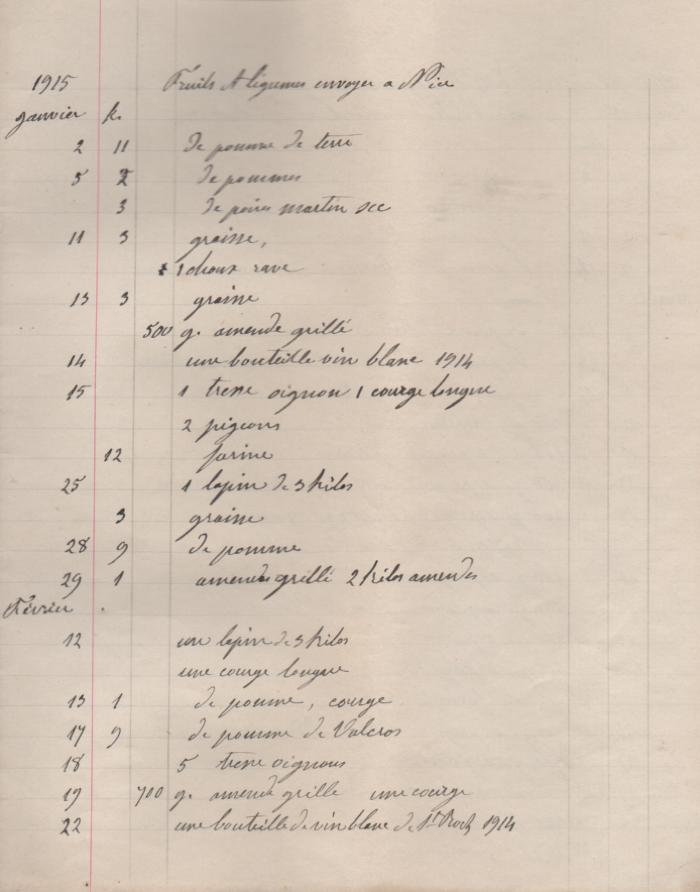 1915 Fruits et légumes envoyer a Nice
Janvier k.
2 11 de pomme de terre
5 2 de pommes
3 de poires martin sec
11 3 graisse,
1 choux rave
13 3 graisse
500 g. amende grillé
14 une bouteille vin blanc 1914
15 1 tresse oignon 1 courge longue
2 pigeons
12 farine
25 1 lapin de 3 kilos
3 graisse
28 9 de pomme
29 1 amendes grillé 2 kilos amendes
Février
12 un lapin de 3 kilos
une courge longue
13 1 de pomme, courge
17 9 de pomme de Valcros
18 5 tresse oignons
19 700 g. amende grille une courge
22 une bouteille de vin blanc de St Roch 1914